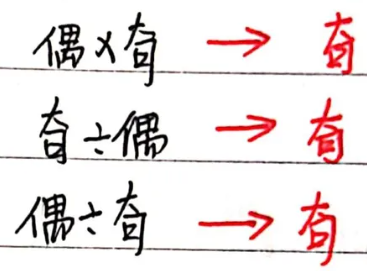 偶×奇 → 奇
奇÷偶 → 奇
偶÷奇 → 奇